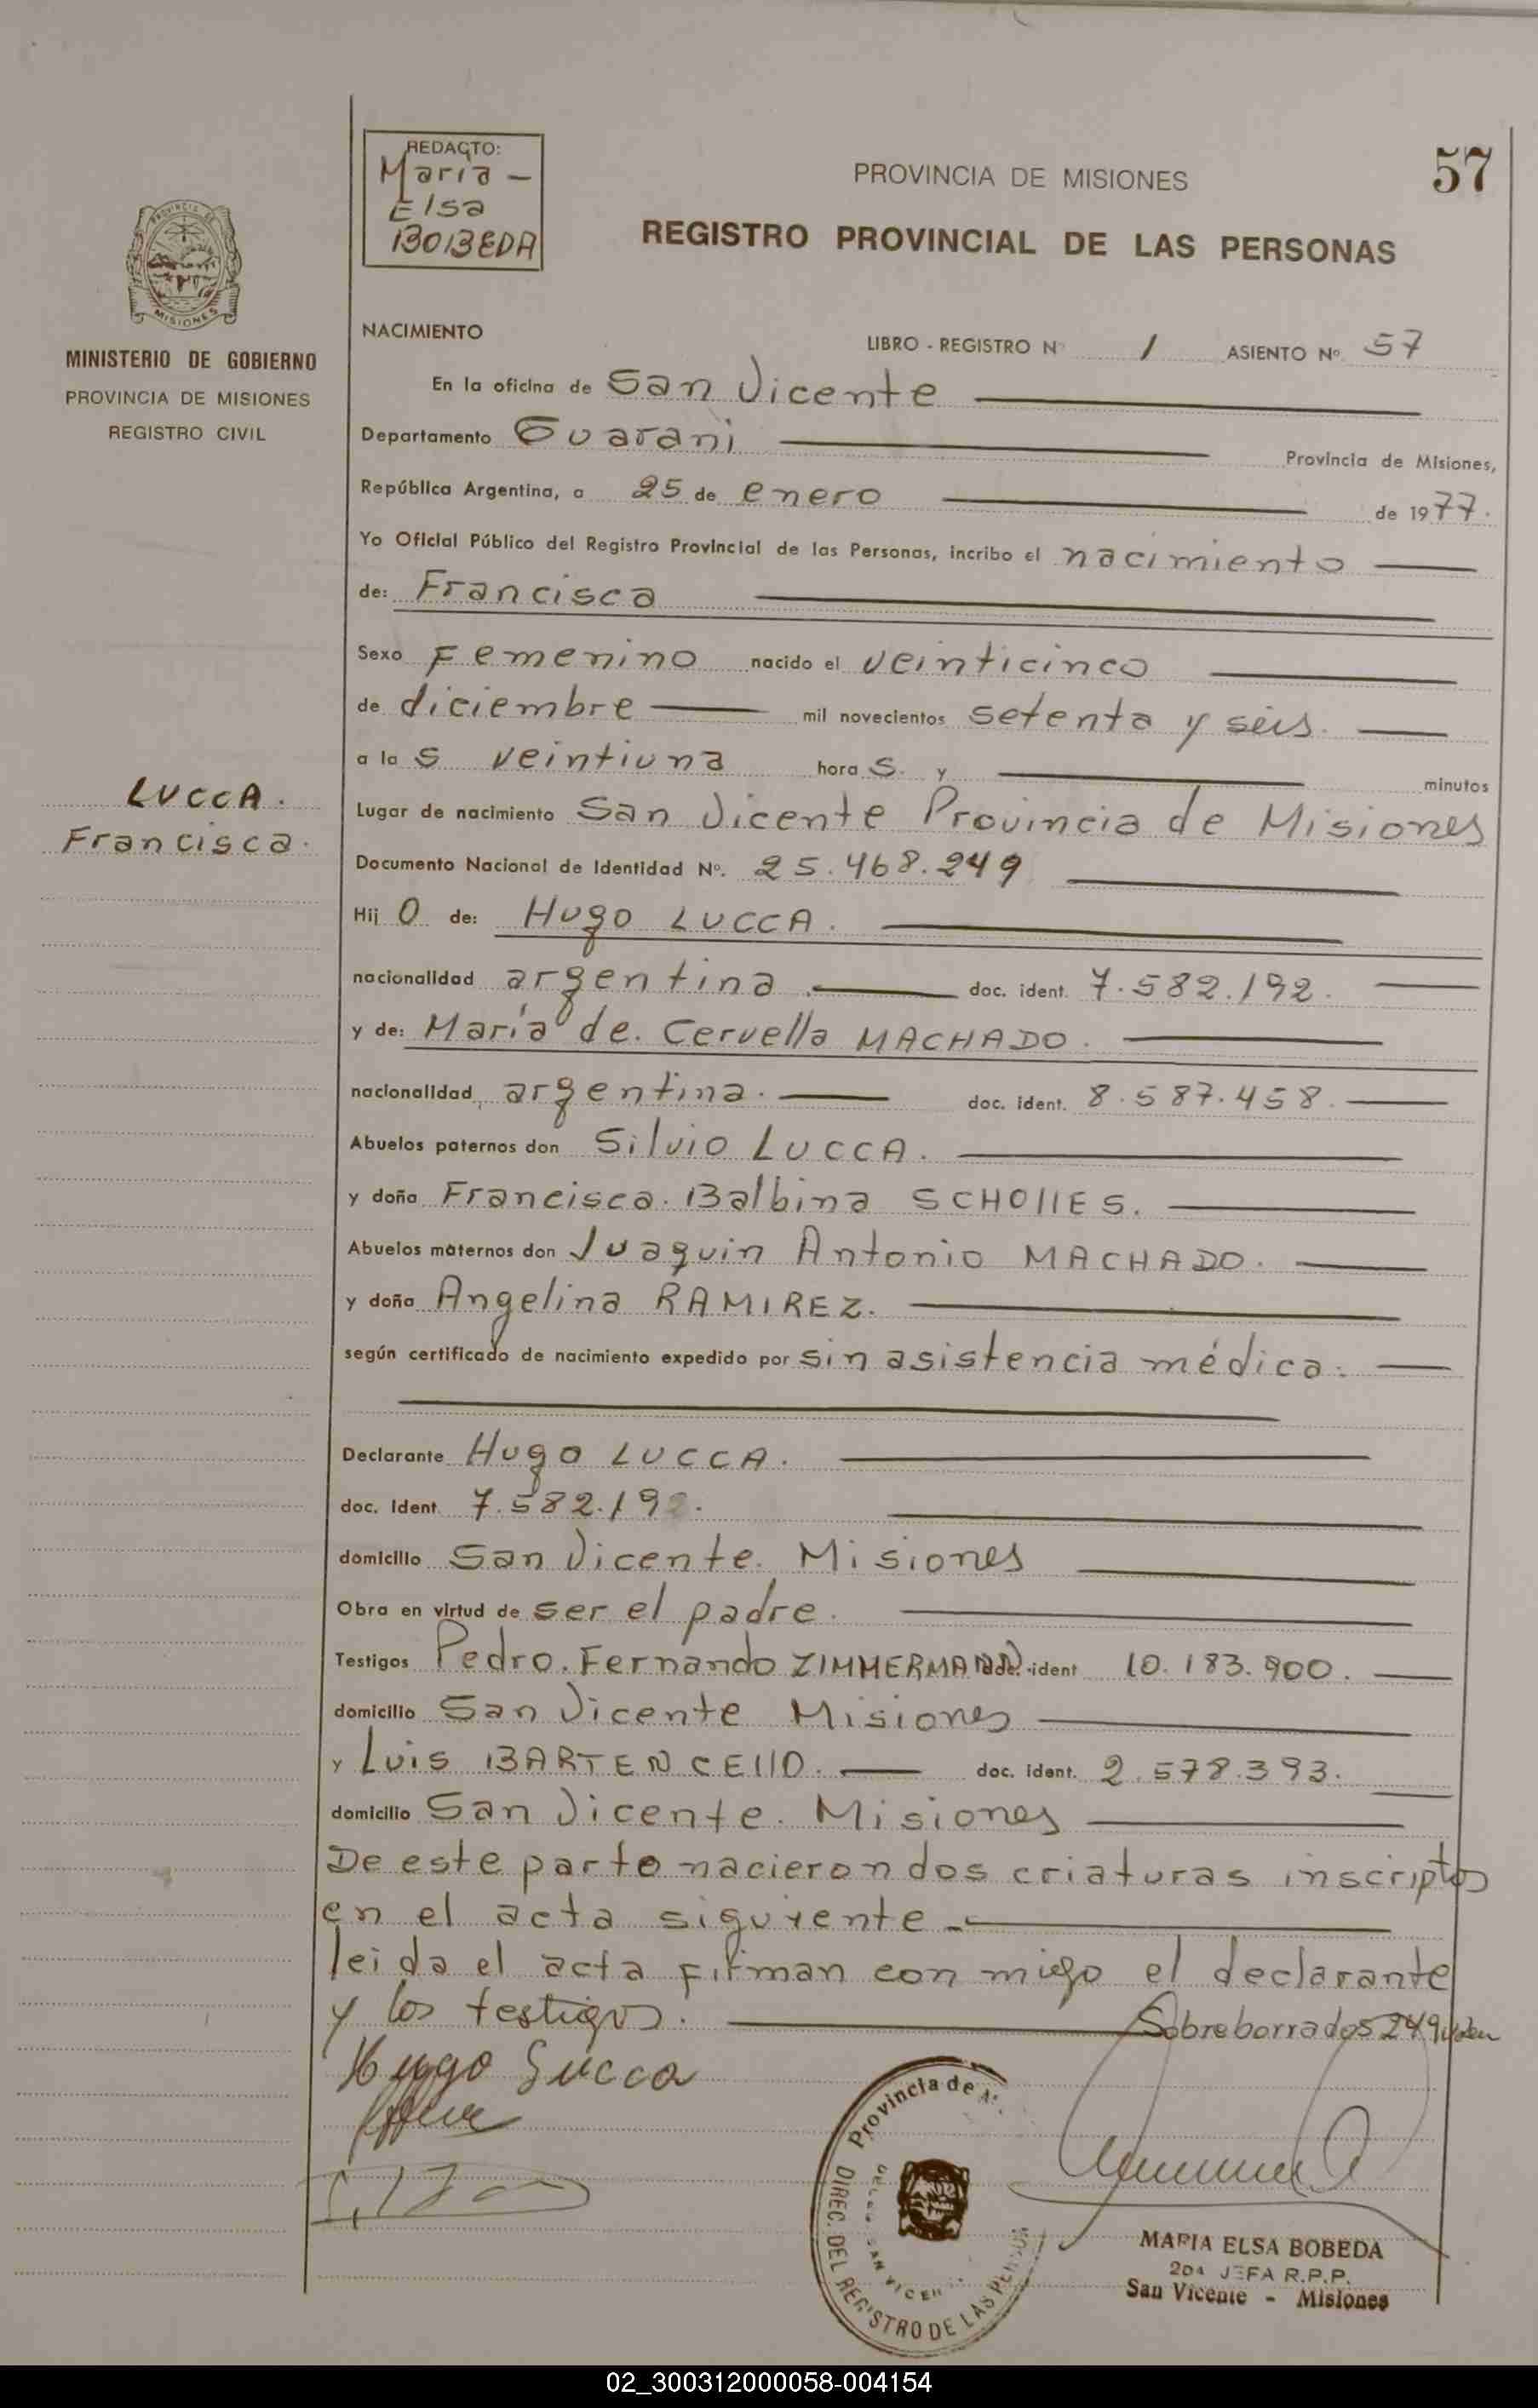 REDACTO:
Maria -
Elsa
BOBEDA
PROVINCIA DE MISIONES
57
REGISTRO PROVINCIAL DE LAS PERSONAS
PROVINCIA DE
MISIONES
MINISTERIO DE GOBIERNO
PROVINCIA DE MISIONES
REGISTRO CIVIL
NACIMIENTO
LIBRO - REGISTRO Nº 1 ASIENTO Nº 57
En la oficina de San Vicente
Departamento Guarani Provincia de Misiones,
República Argentina, a 25 de enero de 1977.
Yo Oficial Público del Registro Provincial de las Personas, incribo el nacimiento
de: Francisca
Sexo Femenino nacido el veinticinco
de diciembre mil novecientos setenta y seis.
a la s veintiuna hora s. y minutos
LUCCA.
Francisca.
Lugar de nacimiento San Vicente Provincia de Misiones
Documento Nacional de Identidad Nº. 25.468.249
Hij o de: Hugo LUCCA.
nacionalidad argentina. doc. ident. 7.582.192.
y de: María de. Cervella MACHADO.
nacionalidad argentina. doc. ident. 8.587.458.
Abuelos paternos don Silvio LUCCA.
y doña Francisca. Balbina SCHOllES.
Abuelos maternos don Juaquin Antonio MACHADO.
y doña Angelina RAMIREZ.
según certificado de nacimiento expedido por sin asistencia médica.
Declarante Hugo LUCCA.
doc. Ident. 7.582.192.
domicilio San Vicente. Misiones
Obra en virtud de ser el padre.
Testigos Pedro. Fernando ZIMMERMANN doc. ident 10.183.900.
domicilio San Vicente Misiones
y Luis BARTENCEllO. doc. ident. 2.578.393.
domicilio San Vicente. Misiones
De este parto nacieron dos criaturas inscriptos
en el acta siguiente.
leida el acta firman con migo el declarante
y los testigos.
Sobreborrados 249 valen
Hugo Lucca
Provincia de
DIREC. DEL REGISTRO DE LAS PERSON
SAN VICEN
MARIA ELSA BOBEDA
JEFA R.P.P.
San Vicente - Misiones
02_300312000058-004154